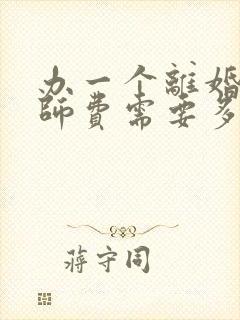 办一个離婚
師費需要多
蔣守同